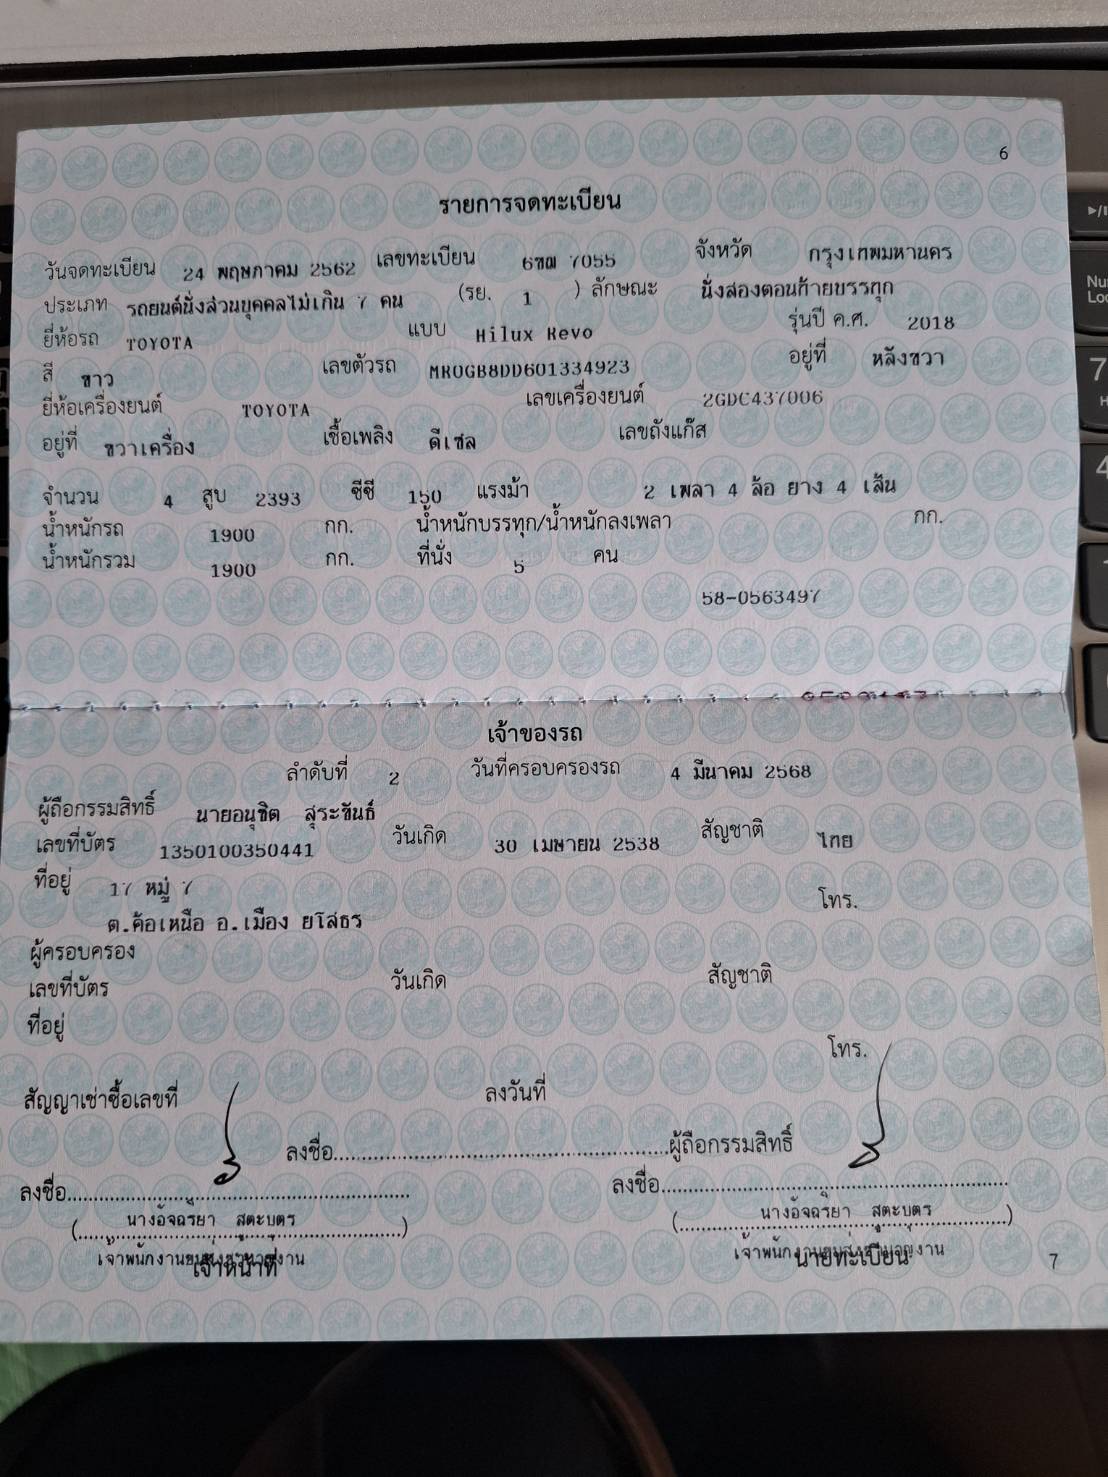 6
รายการจดทะเบียน
วันจดทะเบียน 24 พฤษภาคม 2562 เลขทะเบียน 6ขฒ 7055 จังหวัด กรุงเทพมหานคร
ประเภท รถยนต์นั่งส่วนบุคคลไม่เกิน 7 คน (รย. 1 ) ลักษณะ นั่งสองตอนท้ายบรรทุก
ยี่ห้อรถ TOYOTA แบบ Hilux Revo รุ่นปี ค.ศ. 2018
สี ขาว เลขตัวรถ MR0GB8DD601334923 อยู่ที่ หลังขวา
ยี่ห้อเครื่องยนต์ TOYOTA เลขเครื่องยนต์ 2GDC437006
อยู่ที่ ขวาเครื่อง เชื้อเพลิง ดีเซล เลขถังแก๊ส
จำนวน 4 สูบ 2393 ซีซี 150 แรงม้า 2 เพลา 4 ล้อ ยาง 4 เส้น
น้ำหนักรถ 1900 กก. น้ำหนักบรรทุก/น้ำหนักลงเพลา กก.
น้ำหนักรวม 1900 กก. ที่นั่ง 5 คน
58-0563497
เจ้าของรถ
ลำดับที่ 2 วันที่ครอบครองรถ 4 มีนาคม 2568
ผู้ถือกรรมสิทธิ์ นายอนุชิต สุระขันธ์
เลขที่บัตร 1350100350441 วันเกิด 30 เมษายน 2538 สัญชาติ ไทย
ที่อยู่ 17 หมู่ 7 โทร.
ต.ค้อเหนือ อ.เมือง ยโสธร
ผู้ครอบครอง
เลขที่บัตร วันเกิด สัญชาติ
ที่อยู่
โทร.
สัญญาเช่าซื้อเลขที่ ลงวันที่
ลงชื่อ ผู้ถือกรรมสิทธิ์
ลงชื่อ ลงชื่อ
(นางอัจฉรียา สูตะบุตร) (นางอัจฉรียา สูตะบุตร)
เจ้าพนักงานขนส่งชำนาญงาน เจ้าพนักงานขนส่งชำนาญงาน
เจ้าหน้าที่ นายทะเบียน 7